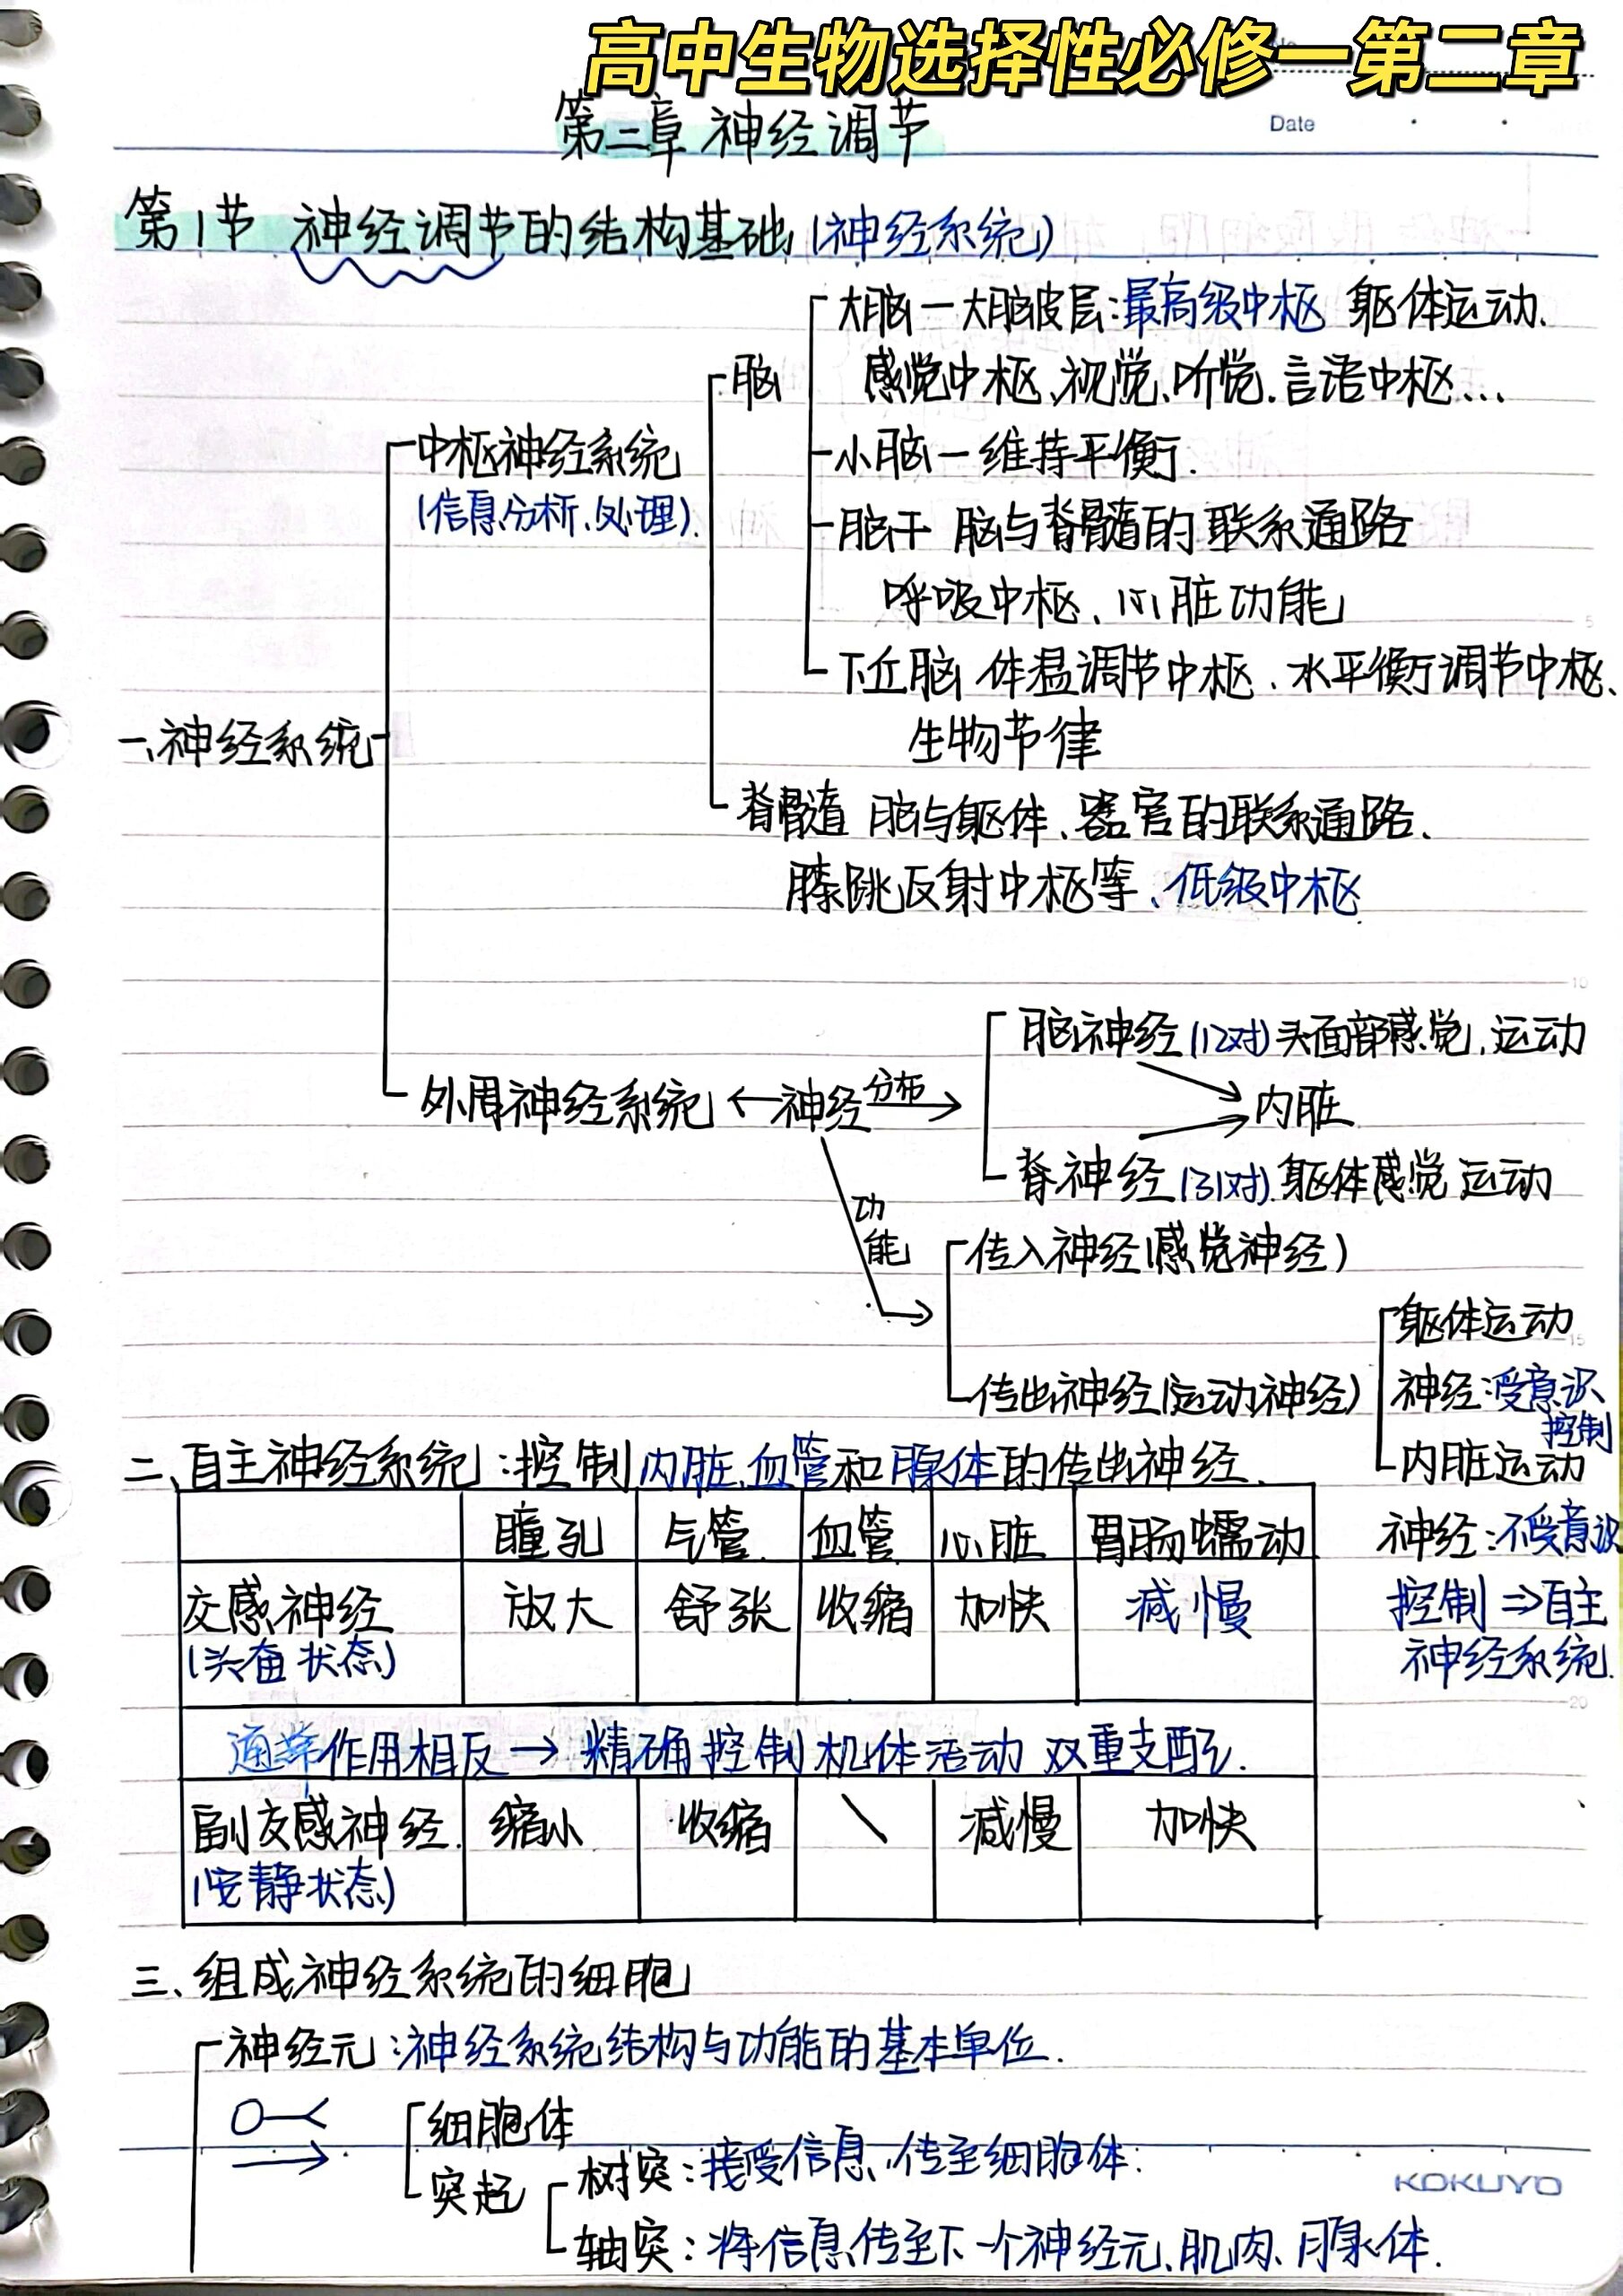 高中生物选择性必修一第二章
第二章 神经调节
Date
第1节 神经调节的结构基础(神经系统)
大脑—大脑皮层:最高级中枢 躯体运动、
脑
感觉中枢、视觉、听觉、言语中枢...
中枢神经系统
(信息分析、处理)
小脑—维持平衡.
脑干 脑与脊髓的联系通路
呼吸中枢、心脏功能
下丘脑 体温调节中枢、水平衡调节中枢、
生物节律
一、神经系统
脊髓 脑与躯体、器官的联系通路、
膝跳反射中枢等、低级中枢
脑神经(12对)头面部感觉、运动
外周神经系统 ← 神经 分布→
内脏
脊神经(31对)躯体感觉 运动
功能
传入神经(感觉神经)
传出神经(运动神经)
躯体运动
神经:受意识
控制
内脏运动
神经:不受意识
控制⇒自主
神经系统.
二、自主神经系统:控制内脏、血管和腺体的传出神经.
瞳孔 气管 血管 心脏 胃肠蠕动
交感神经 放大 舒张 收缩 加快 减慢
(兴奋状态)
通常作用相反→精确控制机体活动 双重支配.
副交感神经 缩小 收缩 \ 减慢 加快
(安静状态)
三、组成神经系统的细胞
神经元:神经系统结构与功能的基本单位.
细胞体
突起
树突:接受信息,传至细胞体.
轴突:将信息传至下一个神经元、肌肉、腺体.
KOKUYO
5
10
15
20